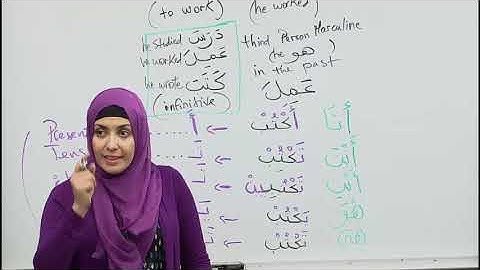 (to work) (he worked)
he studied دَرَسَ third Person Masculine
he worked عَمِلَ (he هو)
he wrote كَتَبَ in the past
(infinitive) عَمِلَ
أَنَا أَكْتُبْ ← أَ ...... Present
أَنْتَ تَكْتُبْ ← تَ ...... Tense
أَنْتِ تَكْتُبِينْ ← تَ
(هُوَ) يَكْتُبْ ← يَ
(هِيَ) تَكْتُبْ ← تَ